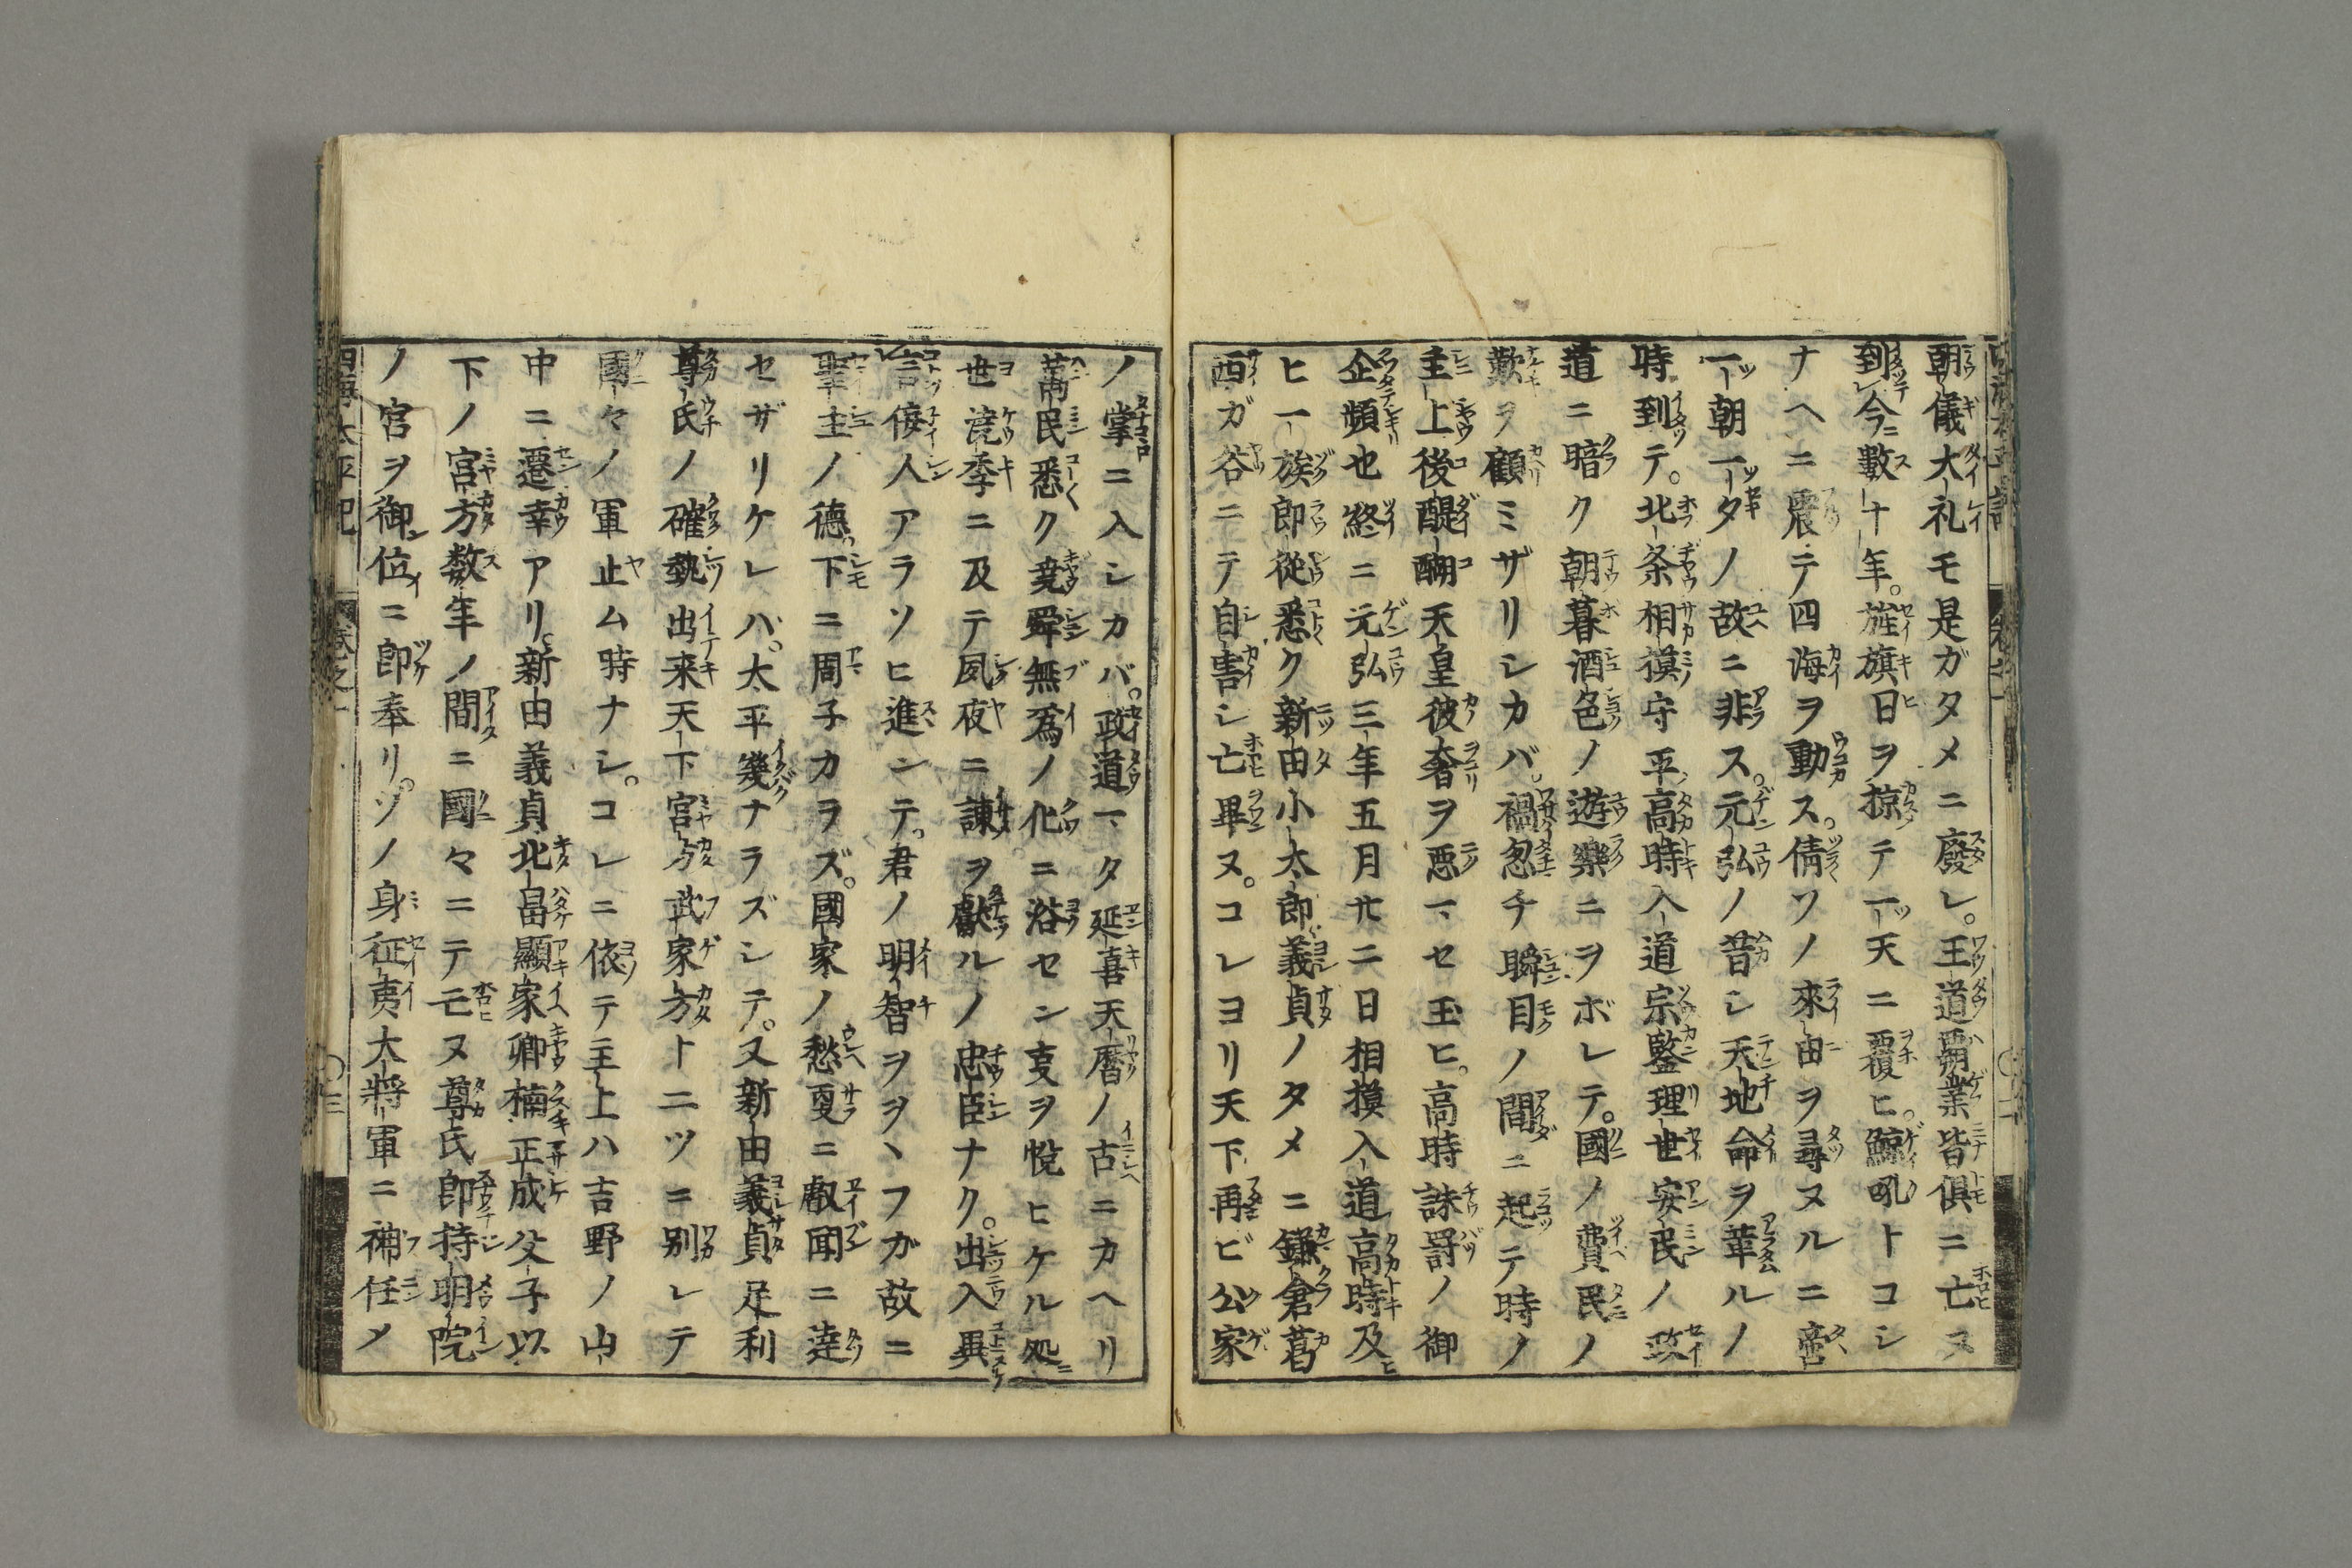 朝儀大礼モ是ガタメニ廢レ。王道覇業皆倶ニ亡ヌ
到今數十年。旌旗日ヲ掠テ一天ニ覆ヒ。鯨吼トコシ
ナヘニ震テ四海ヲ動ス。倩ソノ來由ヲ尋ヌルニ啻
一朝一夕ノ故ニ非ス。元弘ノ昔シ天地命ヲ革ルノ
時到テ。北条相摸守平高時入道宗鑒理世安民ノ政
道ニ暗ク朝暮酒色ノ遊樂ニヲボレテ。國ノ費民ノ
歎ヲ顧ミザリシカバ。禍忽チ瞬目ノ間ニ起テ時ノ
主上後醍醐天皇彼奢ヲ悪マセ玉ヒ。高時誅罰ノ御
企頻也終ニ元弘三年五月廿二日相摸入道高時及
ヒ一族郎從悉ク新田小太郎義貞ノタメニ鎌倉葛
西ガ谷ニテ自害シ亡畢ヌ。コレヨリ天下再ビ公家
ノ掌ニ入シカバ。政道マタ延喜天暦ノ古ニカヘリ
萬民悉ク堯舜無爲ノ化ニ浴セン叓ヲ悦ヒケル処ニ
世澆季ニ及テ夙夜ニ諌ヲ獻ルノ忠臣ナク。出入異
言侫人アラソヒ進ンテ。君ノ明智ヲヲヽフガ故ニ
聖主ノ德。下ニ周子カラズ。國家ノ愁叓ニ叡聞ニ達
セザリケレハ。太平幾ナラズシテ。又新田義貞足利
尊氏ノ確執出来天下宮方武家方ト二ツニ別レテ
國々ノ軍止ム時ナシ。コレニ依テ主上ハ吉野ノ山
中ニ遷幸アリ。新田義貞北畠顯家卿楠正成父子以
下ノ宮方数年ノ間ニ國々ニテ亡ヌ尊氏卽持明院
ノ宮ヲ御位ニ卽奉リ。ソノ身征夷大將軍ニ補任メ
四海太平記 卷之一 〇三